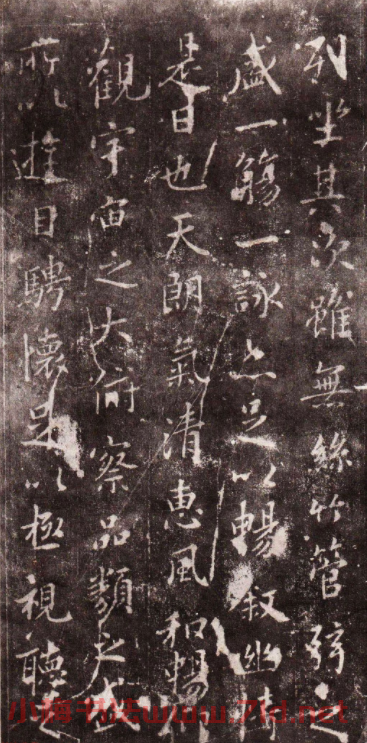 列坐其次雖無絲竹管弦之
盛一觴一詠亦足以暢叙幽情
是日也天朗氣清惠風和暢仰
觀宇宙之大俯察品類之盛
所以遊目騁懷足以極視聽之
小楷书法www.71d.net